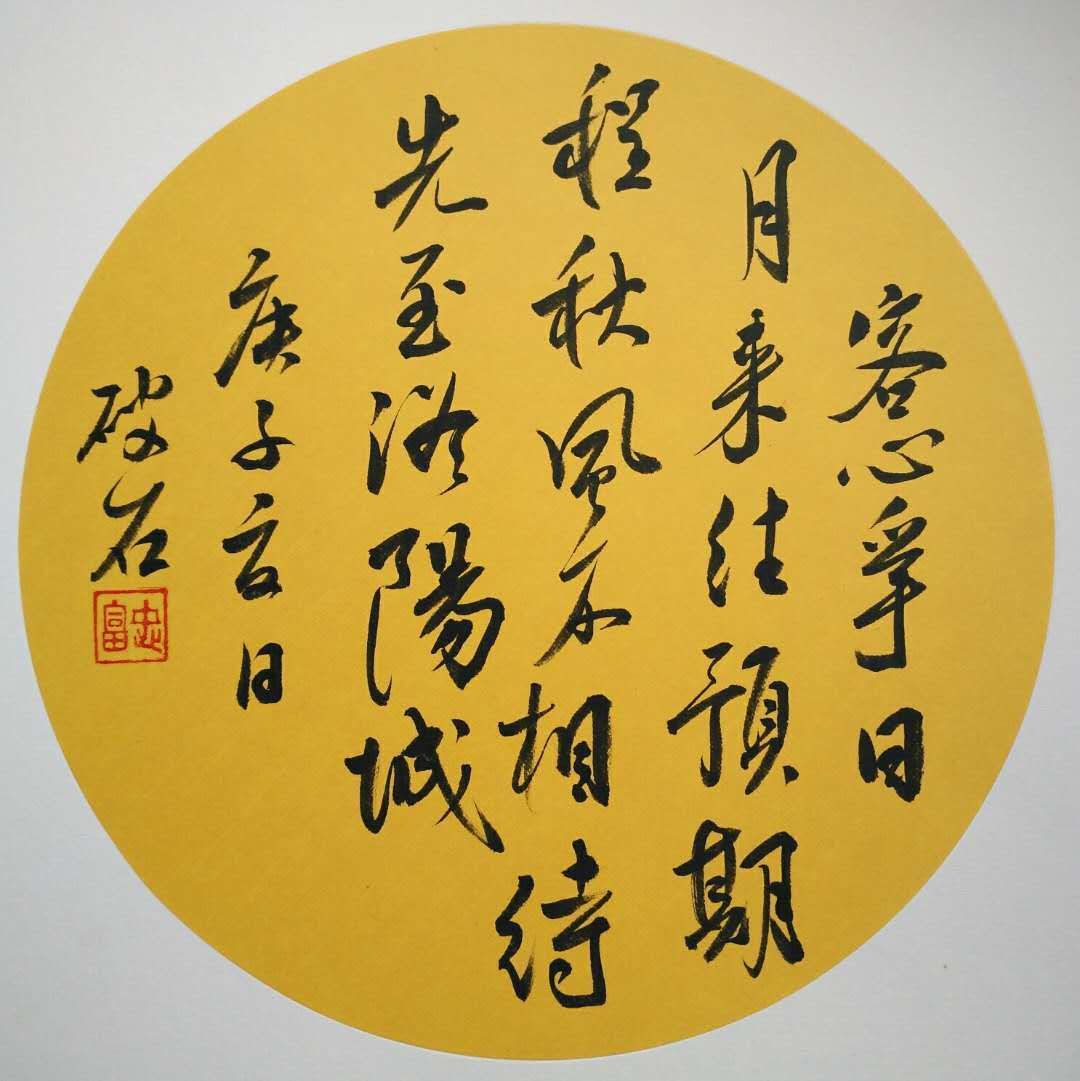 客心爭日
月来往預期
程秋風不相待
先至洛陽城
庚子夏日
破石
忠富